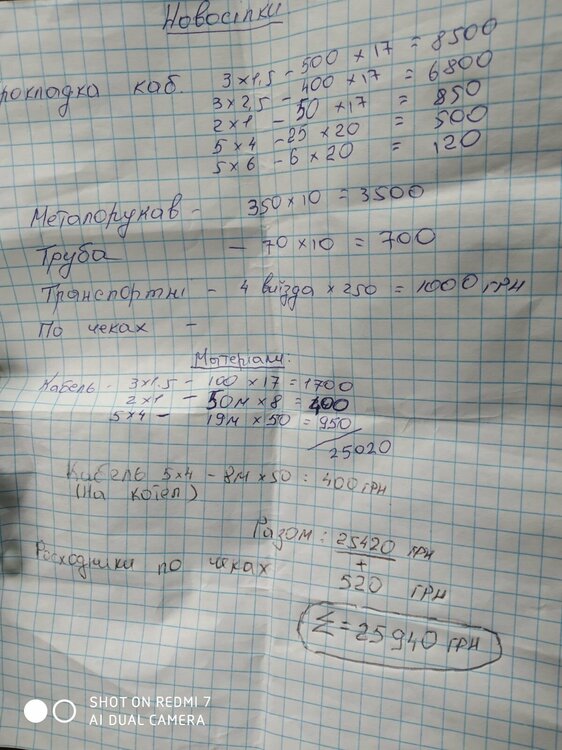 Новосілки
прокладка каб. 3×1,5 - 500 × 17 = 8500
3×2,5 - 400 × 17 = 6800
2×1 - 50 × 17 = 850
5×4 - 25 × 20 = 500
5×6 - 6 × 20 = 120
Металорукав - 350×10 = 3500
Труба - 70×10 = 700
Транспортні - 4 виїзда × 250 = 1000 грн
По чеках -
Матеріали:
Кабель - 3×1.5 - 100 × 17 = 1700
2×1 - 50м × 8 = 400
5×4 - 19м × 50 = 950
25020
Кабель 5×4 - 8м × 50 = 400 грн
(На котел)
Разом: 25420 грн
+
Росходніки по чеках 520 грн
Σ = 25940 грн
SHOT ON REDMI 7
AI DUAL CAMERA